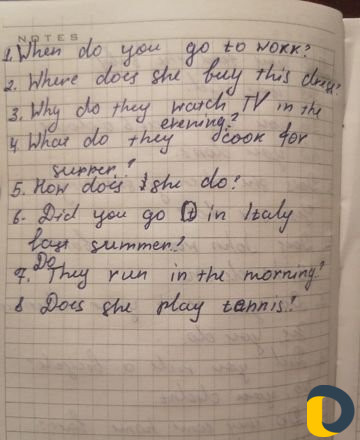 NOTES
1. When do you go to work?
2. Where does she buy this dress?
3. Why do they watch TV in the
evening?
4 What do they cook for
supper?
5. How does she do?
6. Did you go in Italy
last summer?
Do
7. They run in the morning?
8 Does she play tennis?